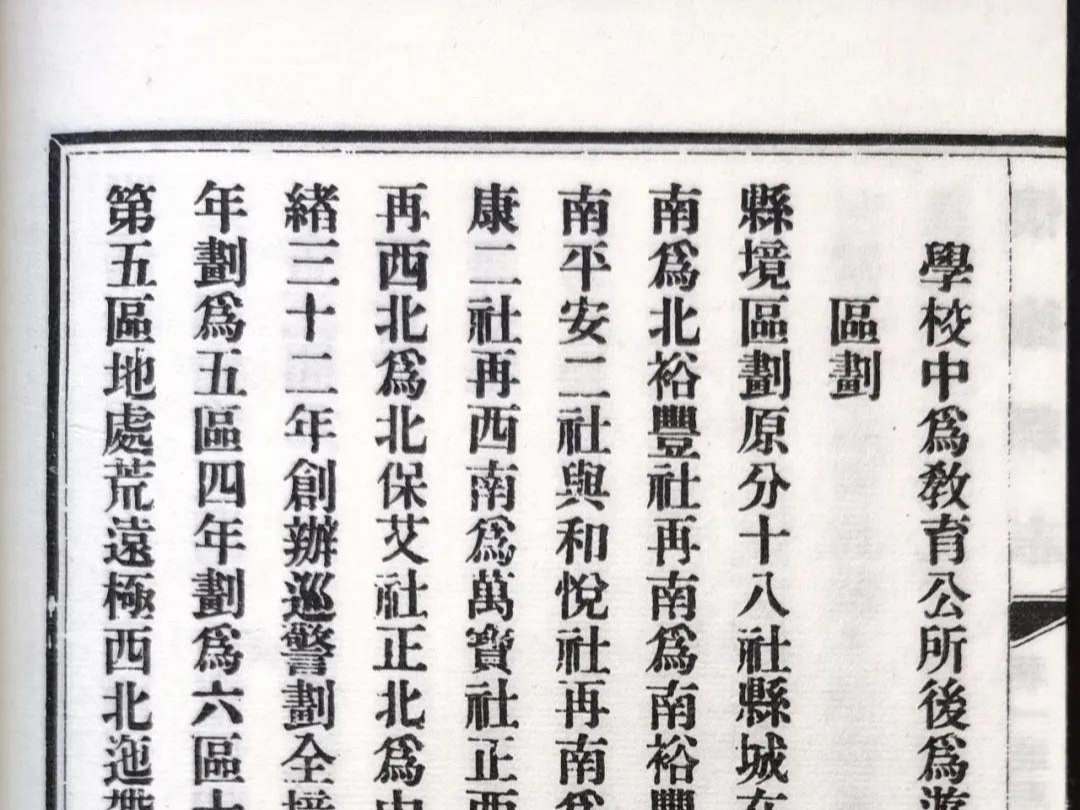 學校中爲敎育公所後爲
區劃
縣境區劃原分十八社縣城
南爲北裕豐社再南爲南裕豐
南平安二社與和悅社再南爲
康二社再西南爲萬寶社正西
再西北爲北保艾社正北爲中
緖三十二年創辦巡警劃全境
年劃爲五區四年劃爲六區
第五區地處荒遠極西北迤